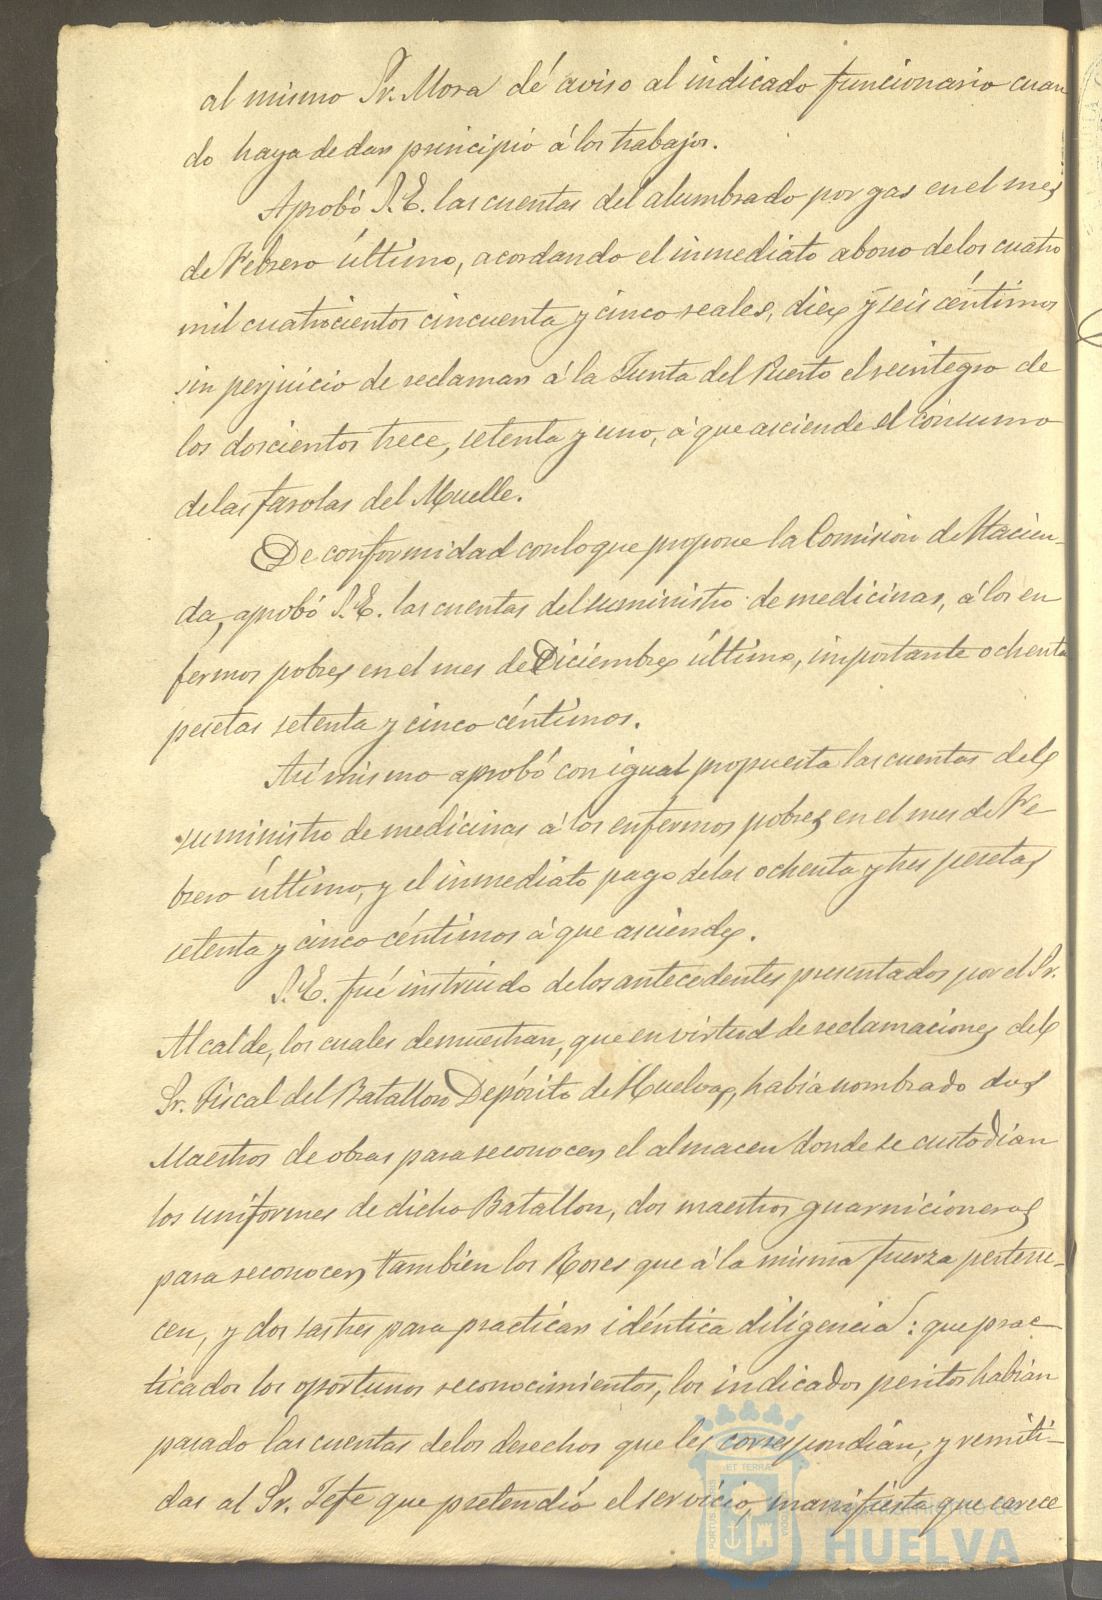 al mismo Sr. Mora dé aviso al indicado funcionario cuan
do haya de dar principio á los trabajos.
Aprobó S.E. las cuentas del alumbrado por gas en el mes
de Febrero último, acordando el inmediato abono de los cuatro
mil cuatrocientos cincuenta y cinco reales, diez y seis céntimos
sin perjuicio de reclamar á la Junta del Puerto el reintegro de
los doscientos trece, setenta y uno, á que asciende el consumo
de las farolas del Muelle.
De conformidad con lo que propone la Comisión de Hacien-
da, aprobó S.E. las cuentas del suministro de medicinas, á los en
fermos pobres en el mes de Diciembre último, importante ochenta
pesetas setenta y cinco céntimos.
Así mismo aprobó con igual propuesta las cuentas del
suministro de medicinas á los enfermos pobres en el mes de Fe-
brero último, y el inmediato pago de las ochenta y tres pesetas
setenta y cinco céntimos á que asciende.
S.E. fué instruido de los antecedentes presentados por el Sr.
Alcalde, los cuales demuestran, que en virtud de reclamaciones del
Sr. Fiscal del Batallon Depósito de Huelva, había nombrado dos
Maestros de obras para reconocer el almacen donde se custodían
los uniformes de dicho Batallon, dos maestros guarnicioneros
para reconocer también los Roses que á la misma fuerza pertene-
cen, y dos sastres para practicar idéntica diligencia: que prac-
ticados los oportunos reconocimientos, los indicados peritos habían
pasado las cuentas de los derechos que les correspondían, y remiti-
das al Sr. Jefe que pretendió el servicio, manifiesta que carece
ET TERRÆ
Ayuntamiento de
HUELVA